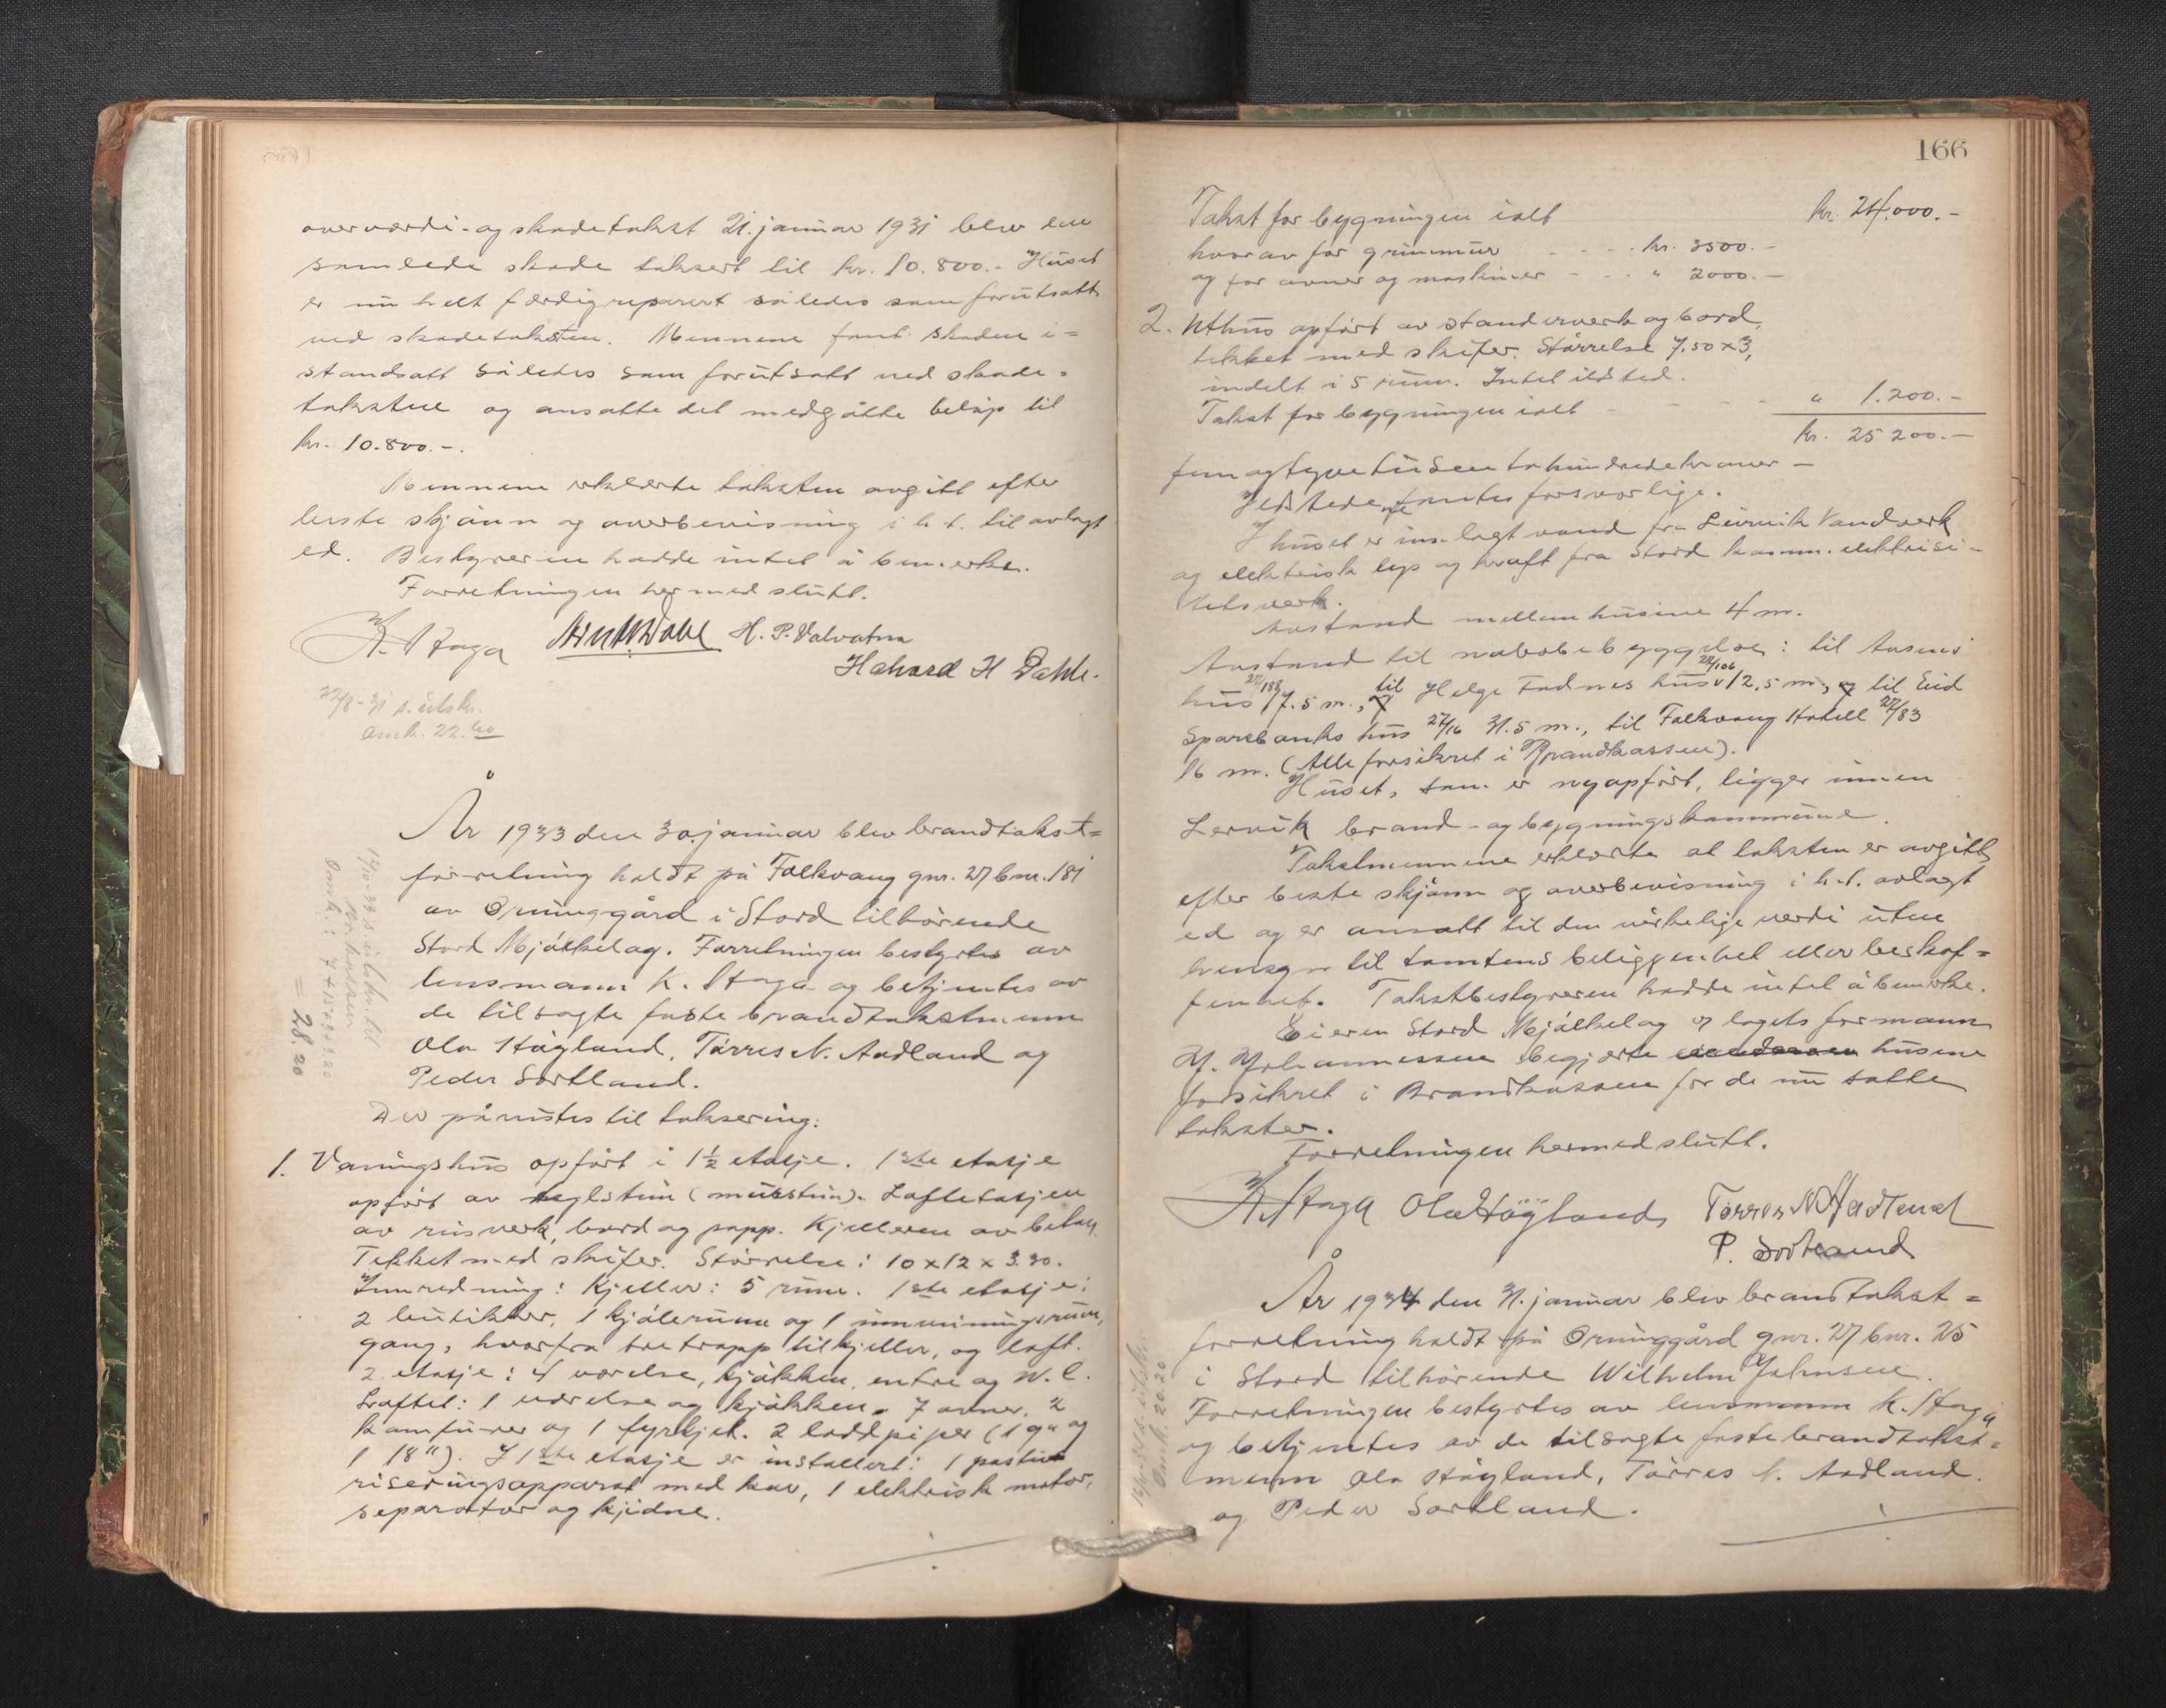 overværdi- og skadetakst 21. januar 1931 blev den
samlede skade taksert til kr. 10.800.- Huset
er nu helt færdigreparert således som forutsatt
ved skadetaksten. Mennene fant skaden i=
standsatt således som forutsatt ved skade=
taksten og ansatte det medgåtte beløp til
kr. 10.800.-.
Mennene erklærte taksten avgitt efter
beste skjønn og overbevisning i h.t. til avlagt
ed. Bestyreren hadde intet å bemerke.
Forretningen hermed slutt.
K. Haga H. P. Valvatna
Håvard H Dahle.
22/8-31 s. utskr.
Omk. 22.60
År 1933 den 30. januar blev brandtakst=
forretning holdt på Falkvang gnr. 27 bnr. 181
av Orninggård i Stord tilhørende
Stord Mjølkelag. Forretningen bestyrtes av
lensmann K. Haga og betjentes av
de tilsagte faste brandtakstmenn
Ola Høgland, Tørres N. Aadland og
Peder Sortland.
Der påvistes til taksering:
1. Våningshus opført i 1½ etasje. 1ste etasje
opført av teglsten (mursten). Loftetasjen
av risverk, bord og papp. Kjelleren av betong.
Tekket med skifer. Størrelse: 10 x 12 x 3.30.
Innredning: Kjeller: 5 rum. 1ste etasje:
2 butikker, 1 kjølerum og 1 innveiningsrum,
gang, hvorfra tretrapp til kjeller, og loft.
2. etasje: 4 værelse, kjøkken, entre og W.C.
Loftet: 1 værelse og kjøkken. 7 ovner, 2
komfurer og 1 fyrkjel. 2 loddpiper (1 9" og
1 18"). I 1ste etasje er installert: 1 pasteu
riseringsapparat med kar, 1 elektrisk motor,
separator og kjerne.
= 28,20
166
Takst for bygningen ialt kr. 24.000.-
hvorav for grunnmur - - - kr. 3500.-
og for ovner og maskiner - - - " 2000.-
2. Uthus opført av standerverk og bord,
tekket med skifer. Størrelse 7.50 x 3,
indelt i 5 rum. Intet ildsted.
Takst for bygningen ialt - - - - " 1.200.-
kr. 25 200.-
femogtyvetusentohundredekroner -
Ildstedene fantes forsvarlige.
I huset er innlagt vand fra Leirvik Vandverk
og elektrisk lys og kraft fra Stord komm. elektrisi-
tetsverk.
Avstand mellem husene 4 m.
Avstand til nabobebyggelse: til Aasens
hus 27/188 7.5 m., til Helge Fadnes hus 27/106 12,5 m, til Eid
Sparebanks hus 27/16 31.5 m., til Falkvang Hotell 27/83
16 m. (Alle forsikret i Brandkassen).
Huset, som er nyopført, ligger innen
Lervik brand- og bygningskommune.
Takstmennene erklærte at taksten er avgitt
efter beste skjønn og overbevisning i h.t. avlagt
ed og er ansatt til den virkelige verdi uten
hensyn til tomtens beliggenhet eller beskaf=
fenhet. Takstbestyreren hadde intet å bemerke.
Eieren Stord Mjølkelag v/ lagets formann
Y. Johannessen begjærte husene
forsikret i Brandkassen for de nu satte
takster.
Forretningen hermed slutt.
K. Haga Ola Høgland Tørres N Aadland
P. Sortland
År 1934 den 31. januar blev brandtakst=
forretning holdt på Orninggård gnr. 27 bnr. 25
i Stord tilhørende Wilhelm Johnsen.
Forretningen bestyrtes av lensmann K. Haga
og betjentes av de tilsagte faste brandtakst=
menn Ola Høgland, Tørres N. Aadland
og Peder Sortland.
Omk. 20.20